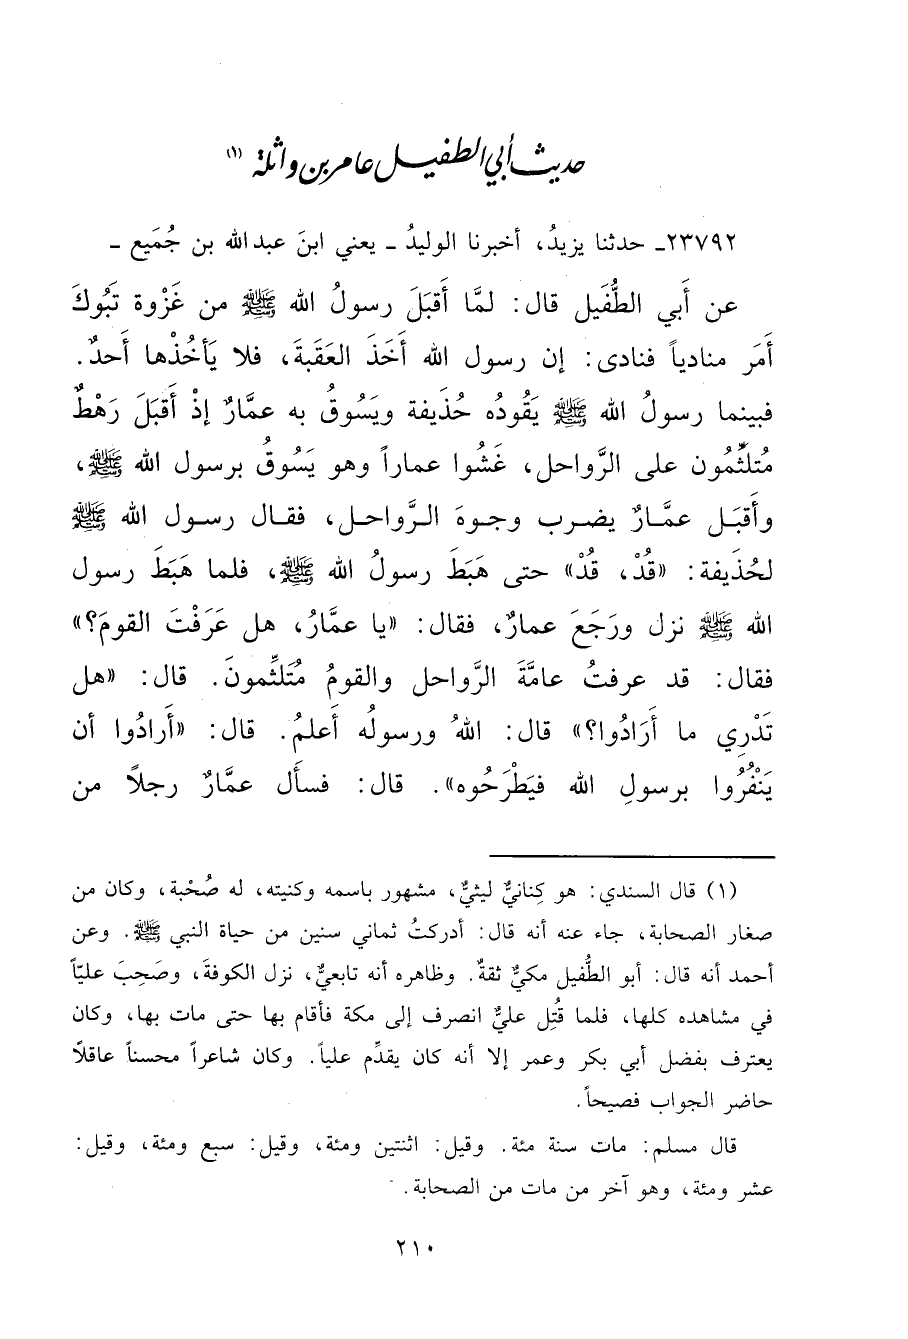 حديث أبي الطفيل عامر بن واثلة (١)
٢٣٧٩٢ـ حدثنا يزيدُ، أخبرنا الوليدُ ـ يعني ابنَ عبدالله بن جُمَيع ـ
عن أَبي الطُّفَيل قال: لمَّا أَقبَلَ رسولُ الله ﷺ من غَزْوة تَبُوكَ
أَمَر منادياً فنادى: إن رسول الله أَخَذَ العَقَبةَ، فلا يَأخُذْها أَحدٌ.
فبينما رسولُ الله ﷺ يَقُودُه حُذَيفة ويَسُوقُ به عمَّارٌ إذْ أَقبَلَ رَهْطٌ
مُتلثِّمُون على الرَّواحل، غَشُوا عماراً وهو يَسُوقُ برسول الله ﷺ،
وأَقبَل عمَّارٌ يضرب وجوهَ الرَّواحل، فقال رسول الله ﷺ
لحُذَيفة: «قُدْ، قُدْ» حتى هَبَطَ رسولُ الله ﷺ، فلما هَبَطَ رسول
الله ﷺ نزل ورَجَعَ عمارٌ، فقال: «يا عمَّارُ، هل عَرَفْتَ القومَ؟»
فقال: قد عرفتُ عامَّةَ الرَّواحل والقومُ مُتَلثِّمونَ. قال: «هل
تَدْرِي ما أَرَادُوا؟» قال: اللهُ ورسولُه أَعلمُ. قال: «أَرادُوا أن
يَنْفُِرُوا برسولِ الله فيَطْرَحُوه». قال: فسأَل عمَّارٌ رجلاً من
(١) قال السندي: هو كِنانيٌّ ليثيٌّ، مشهور باسمه وكنيته، له صُحْبة، وكان من
صغار الصحابة، جاء عنه أنه قال: أدركتُ ثماني سنين من حياة النبي ﷺ. وعن
أحمد أنه قال: أبو الطُّفيل مكيٌّ ثقةٌ. وظاهره أنه تابعيٌّ، نزل الكوفةَ، وصَحِبَ عليّاً
في مشاهده كلها، فلما قُتِل عليٌّ انصرف إلى مكة فأقام بها حتى مات بها، وكان
يعترف بفضل أبي بكر وعمر إلا أنه كان يقدِّم علياً. وكان شاعراً محسناً عاقلاً
حاضر الجواب فصيحاً.
قال مسلم: مات سنة مئة. وقيل: اثنتين ومئة، وقيل: سبع ومئة، وقيل:
عشر ومئة، وهو آخر من مات من الصحابة.
٢١٠